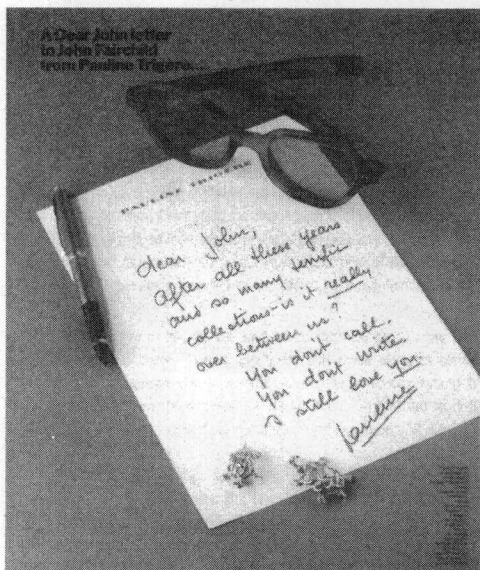 A Dear John letter
to John Fairchild
from Pauline Trigere...
PAULINE TRIGERE
dear John,
After all these years
and so many terrific
collections - is it really
over between us?
you don't call.
you don't write
I still love you.
Pauline